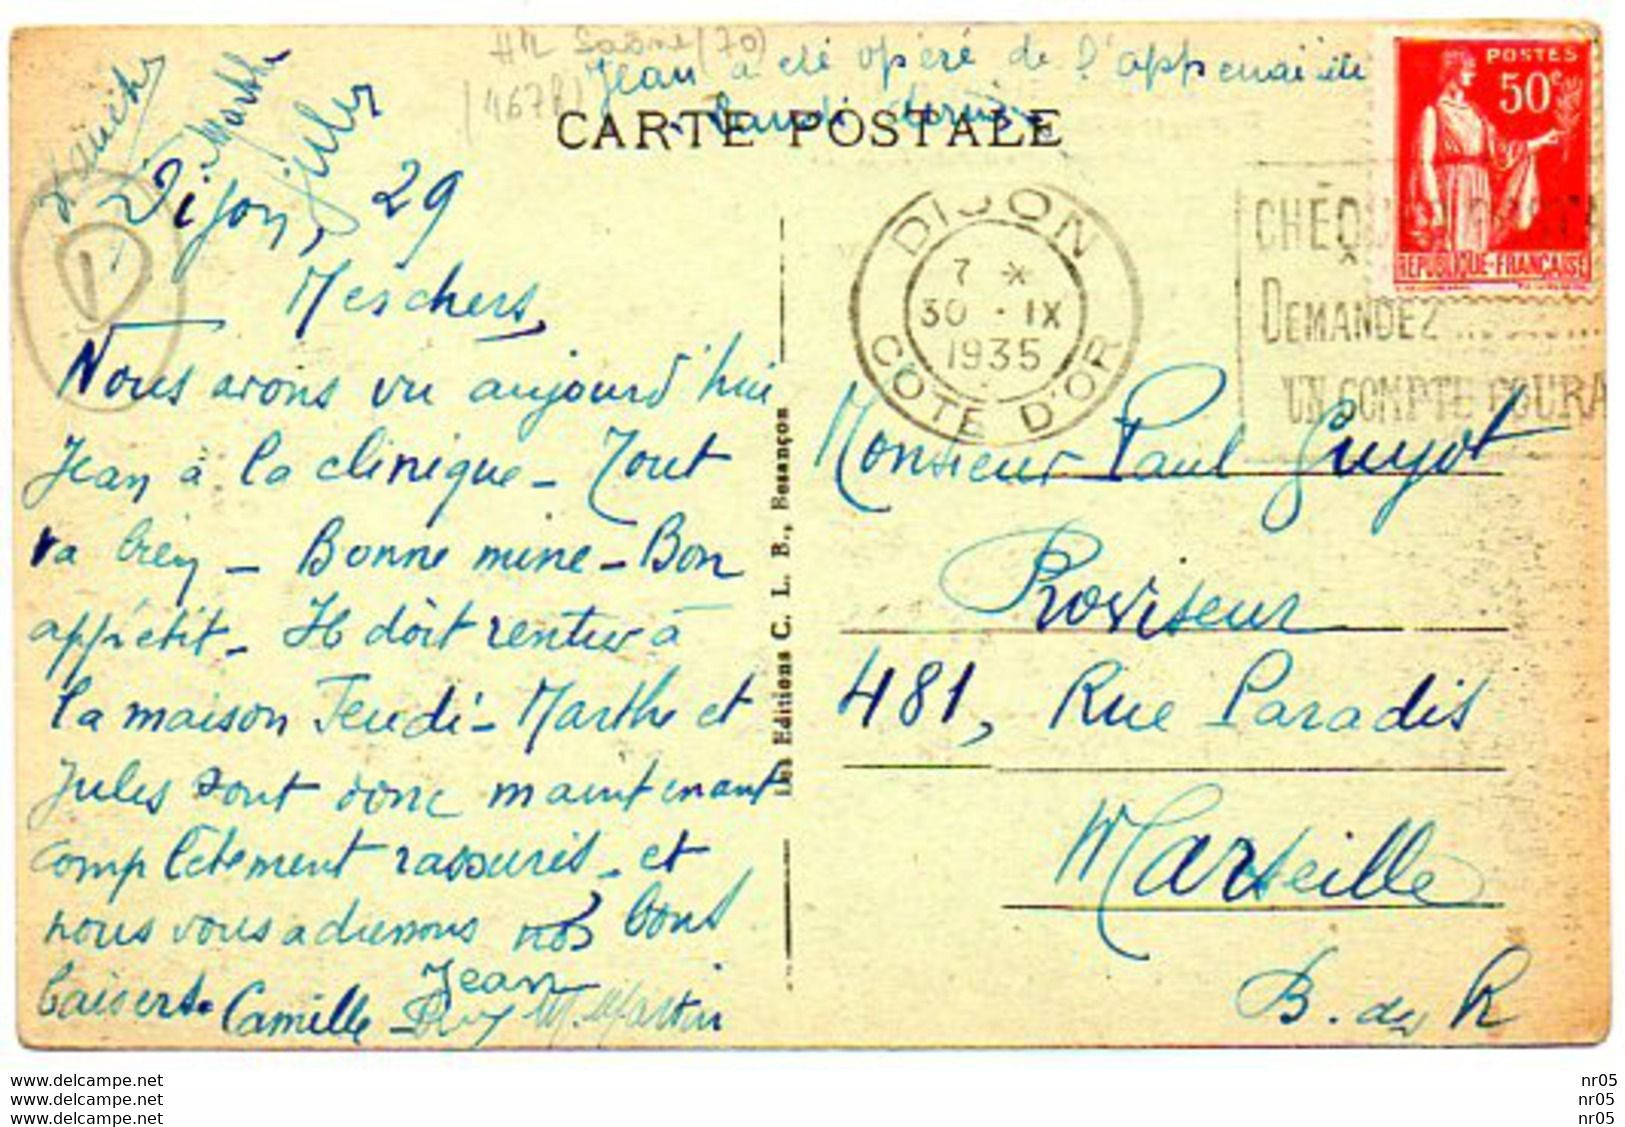 Hte Saône (70)
(467R)
Jean a été opéré de l'appendicite
Lundi dernier
CARTE POSTALE
Marthe
Jules
Dijon, 29
1
Mes chers,
Nous avons vu aujourd'hui
Jean à la clinique - Tout
va bien - Bonne mine - Bon
appétit - Il doit rentrer à
la maison Jeudi - Marthe et
Jules sont donc maintenant
complètement rassurés - et
nous vous adressons nos bons
baisers. Camille - Jean
M. Martin
Les Editions C. L. B., Besançon
POSTES
50c
REPUBLIQUE-FRANÇAISE
DIJON
7 *
30 - IX
1935
COTE D'OR
CHÈQUES
DEMANDEZ
UN COMPTE COURA
Monsieur Paul Guyot
Proviseur
481, Rue Paradis
Marseille
B. du R
www.delcampe.net
www.delcampe.net
www.delcampe.net
nr05
nr05
nr05